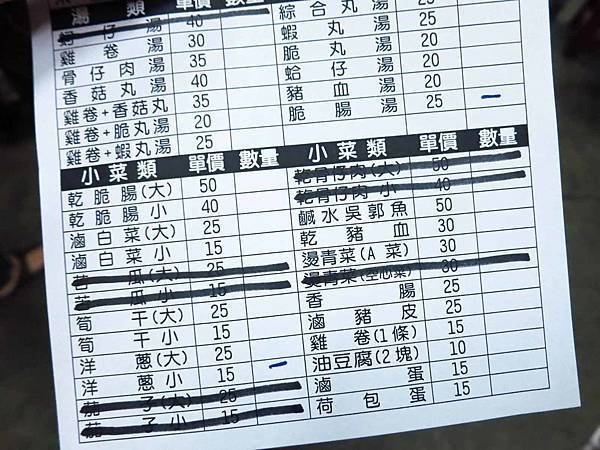 湯 類
仔 湯 40
雞 卷 湯 30
骨仔肉湯 35
香菇丸湯 40
雞卷+香菇丸 35
雞卷+脆丸湯 20
雞卷+蝦丸湯 25
綜合丸湯 25
蝦 丸 湯 25
脆 丸 湯 20
蛤 仔 湯 20
豬 血 湯 20
脆 腸 湯 25 一
小 菜 類 單價 數量
乾 脆 腸(大) 50
乾 脆 腸 小 40
滷 白 菜(大) 25
滷 白 菜 小 15
苦 瓜(大) 25
苦 瓜 小 15
筍 干(大) 25
筍 干 小 15
洋 蔥(大) 25 一
洋 蔥 小 15
茄 子(大) 25
茄 子 小 15
小 菜 類 單價 數量
乾骨仔肉(大) 50
乾骨仔肉 小 40
鹹水吳郭魚 50
乾 豬 血 30
燙青菜(A 菜) 30
燙青菜(空心菜) 30
香 腸 25
滷 豬 皮 25
雞 卷(1條) 15
油豆腐(2塊) 10
滷 蛋 15
荷 包 蛋 15